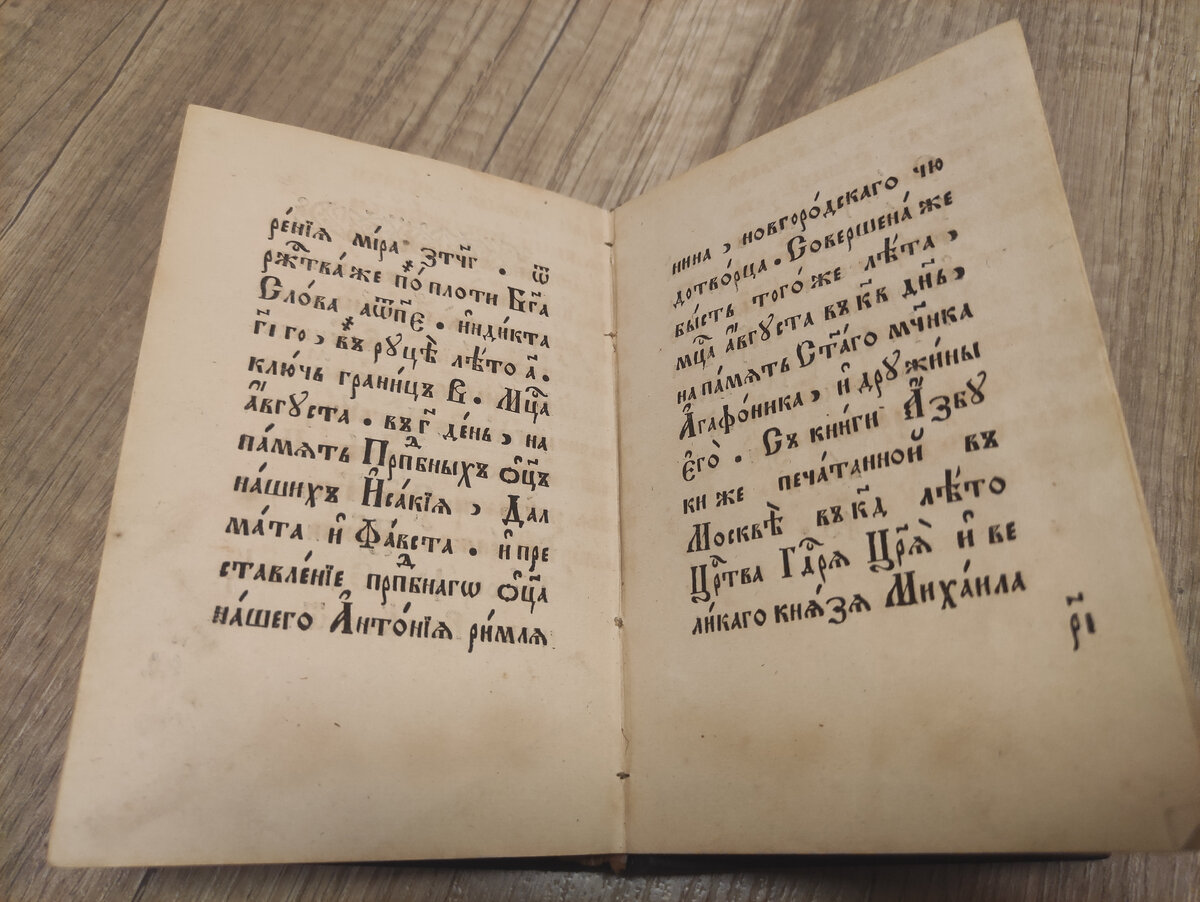 ре́нїѧ мі́ра ҂зтч҃г . ѿ
рж҇тва́ же по́ плоти Бг҃а
Сло́ва ҂аѿп҃е . и҆нди́кта
г҃і го , въ руцѣ̀ лѣ́то а҃ .
ключь грани́цъ в . Мц҇а
а҆́вгꙋста . въ г҃ де́нь , на
па́мѧть Прпⷣбныхъ ѻ҆ц҃ъ
на́шихъ И҆са́кїѧ , Дал
ма́та и҆ Фа́вста . и҆ пре
ставле́нїе прпⷣбнагѡ ѻ҆ц҃а
на́шего А҆нто́нїѧ ри́млѧ
нина , новгоро́дскаго чю
дотво́рца . Соверше́на же
бы́сть того́ же лѣ́та ,
мц҇а а҆́вгуста въ к҃в дн҃ь ,
на па́мѧть Ст҃а́го мч҃ника
А҆гафо́ника , и҆ дружи́ны
є҆гѡ̀ . Съ кни́ги А҆́збꙋ
ки же печа́танной въ
Москвѣ̀ въ к҃д лѣ́то
Црⷭ҇тва Гдⷭ҇рѧ Цр҃ѧ̀ и҆ ве
ли́каго кнѧ́зѧ Михаи́ла
р҃і